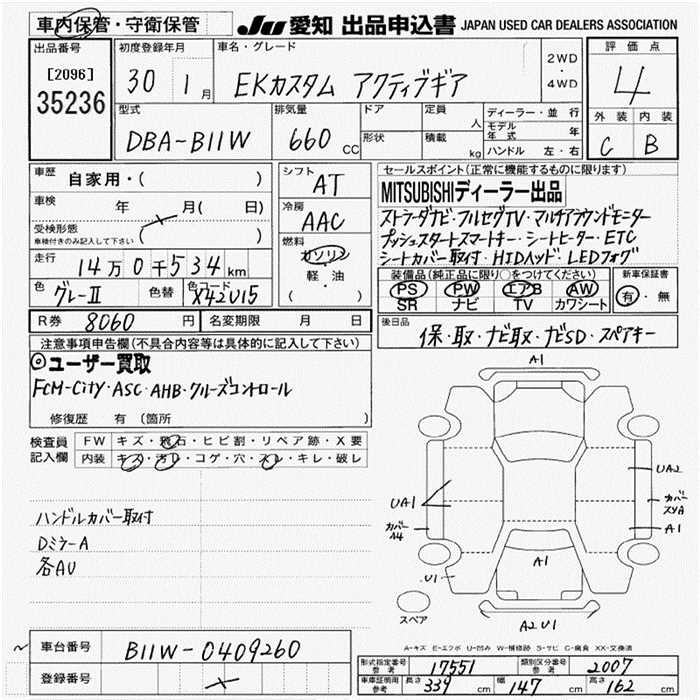 車内保管・守衛保管
JU 愛知 出品申込書 JAPAN USED CAR DEALERS ASSOCIATION
出品番号
[2096]
35236
初度登録年月
30 1月
車名・グレード
EKカスタム アクティブギア
2WD
・
4WD
評価点
4
外装 内装
C B
型式
DBA-B11W
排気量
660 CC
ドア
形状
定員 人
積載 kg
ディーラー・並行
モデル年式 年
ハンドル 左・右
車歴
自家用・( )
車検 年 月( 日)
受検形態
車検付きのみ記入して下さい ( )
走行
14万0千534km
色
グレーII
色替
色コード
X42U15
シフト
AT
冷房
AAC
燃料
ガソリン
・
軽・油
( )
セールスポイント(正常に機能するものに限ります)
MITSUBISHIディーラー出品
ストラーダナビ・フルセグTV・マルチアラウンドモニター
プッシュスタートスマートキー・シートヒーター・ETC
シートカバー取付・HIDヘッド・LEDフォグ
装備品(純正品に限り○をつけてください)
PS PW エアB AW
SR ナビ TV カワシート
新車保証書
有・無
R券 8060円
名変期限 月 日
後日品
保・取・ナビ取・ナビSD・スペアキー
注意事項申告欄(不具合内容等は具体的に記入して下さい)
◎ユーザー買取
FCM-City・ASC・AHB・クルーズコントロール
修復歴 有(箇所 )
検査員記入欄
FW キズ・飛石・ヒビ割・リペア跡・X要
内装 キズ・汚レ・コゲ・穴・スレ・キレ・破レ
ハンドルカバー取付
DミラーA
各AU
A1
UA2
UA1
カバースリA
カバーA4
A1
A1
U1
スペア
A2 U1
A-キズ E-エクボ U-凹み W-補修跡 S-サビ C-腐食 XX-交換済
車台番号
B11W-0409260
登録番号
型式指定番号 参考 17551
類別区分番号 参考 2007
車庫証明用 参考 長さ 339cm 幅 147cm 高さ 162cm